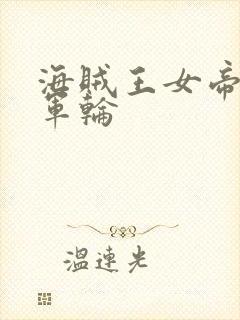 海賊王女帝
軍輪
溫連光